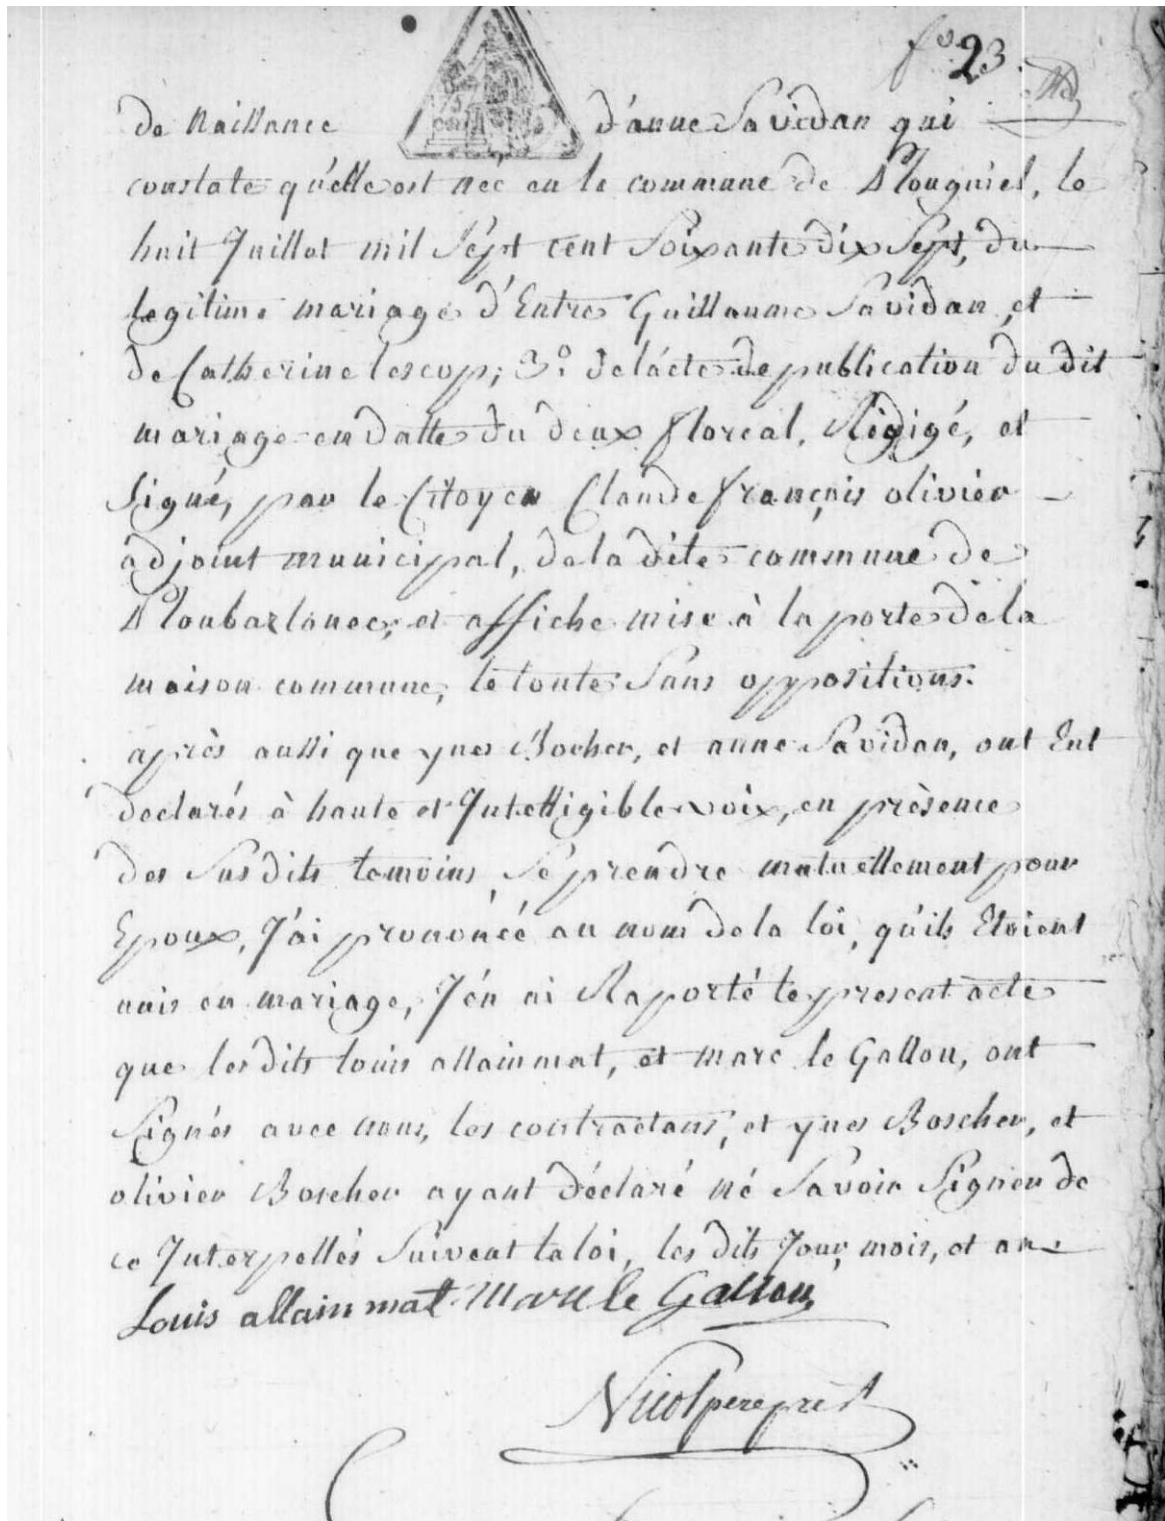 fo 23
de Naissance d'anne Savidan qui
constate qu'elle est née en la commune de Plouguiel, le
huit Juillet mil Sept cent Soixante dix Sept, du
legitime mariage d'Entre Guillaume Savidan, et
de Catherine lescop; 3o. de l'acte de publication du dit
mariage en datte du deux floréal, Rédigé, et
Signé, par le Citoyen Claude françois olivier
adjoint municipal, de la dite commune de
Ploubazlanec; et affiche mise à la porte de la
maison commune, le toute Sans oppositions.
après aussi que yves Bocher, et anne Savidan, ont Eut
declarés à haute et Intelligible voix, en présence
des Susdits temoins, Se prendre mutuellement pour
Epoux, J'ai prononcé au nom de la loi, qu'ils Etoient
unis en mariage, J'én ai Raporté le present acte
que les dits louis allainmat, et marc le Gallou, ont
Signés avec nous, les contractans, et yves Boscher, et
olivier Boscher ayant déclaré né Savoir Signer de
ce Interpellés Suivent la loi, les dits Jour, mois, et an
Louis allain mat Marc le Gallou
Nicol pere